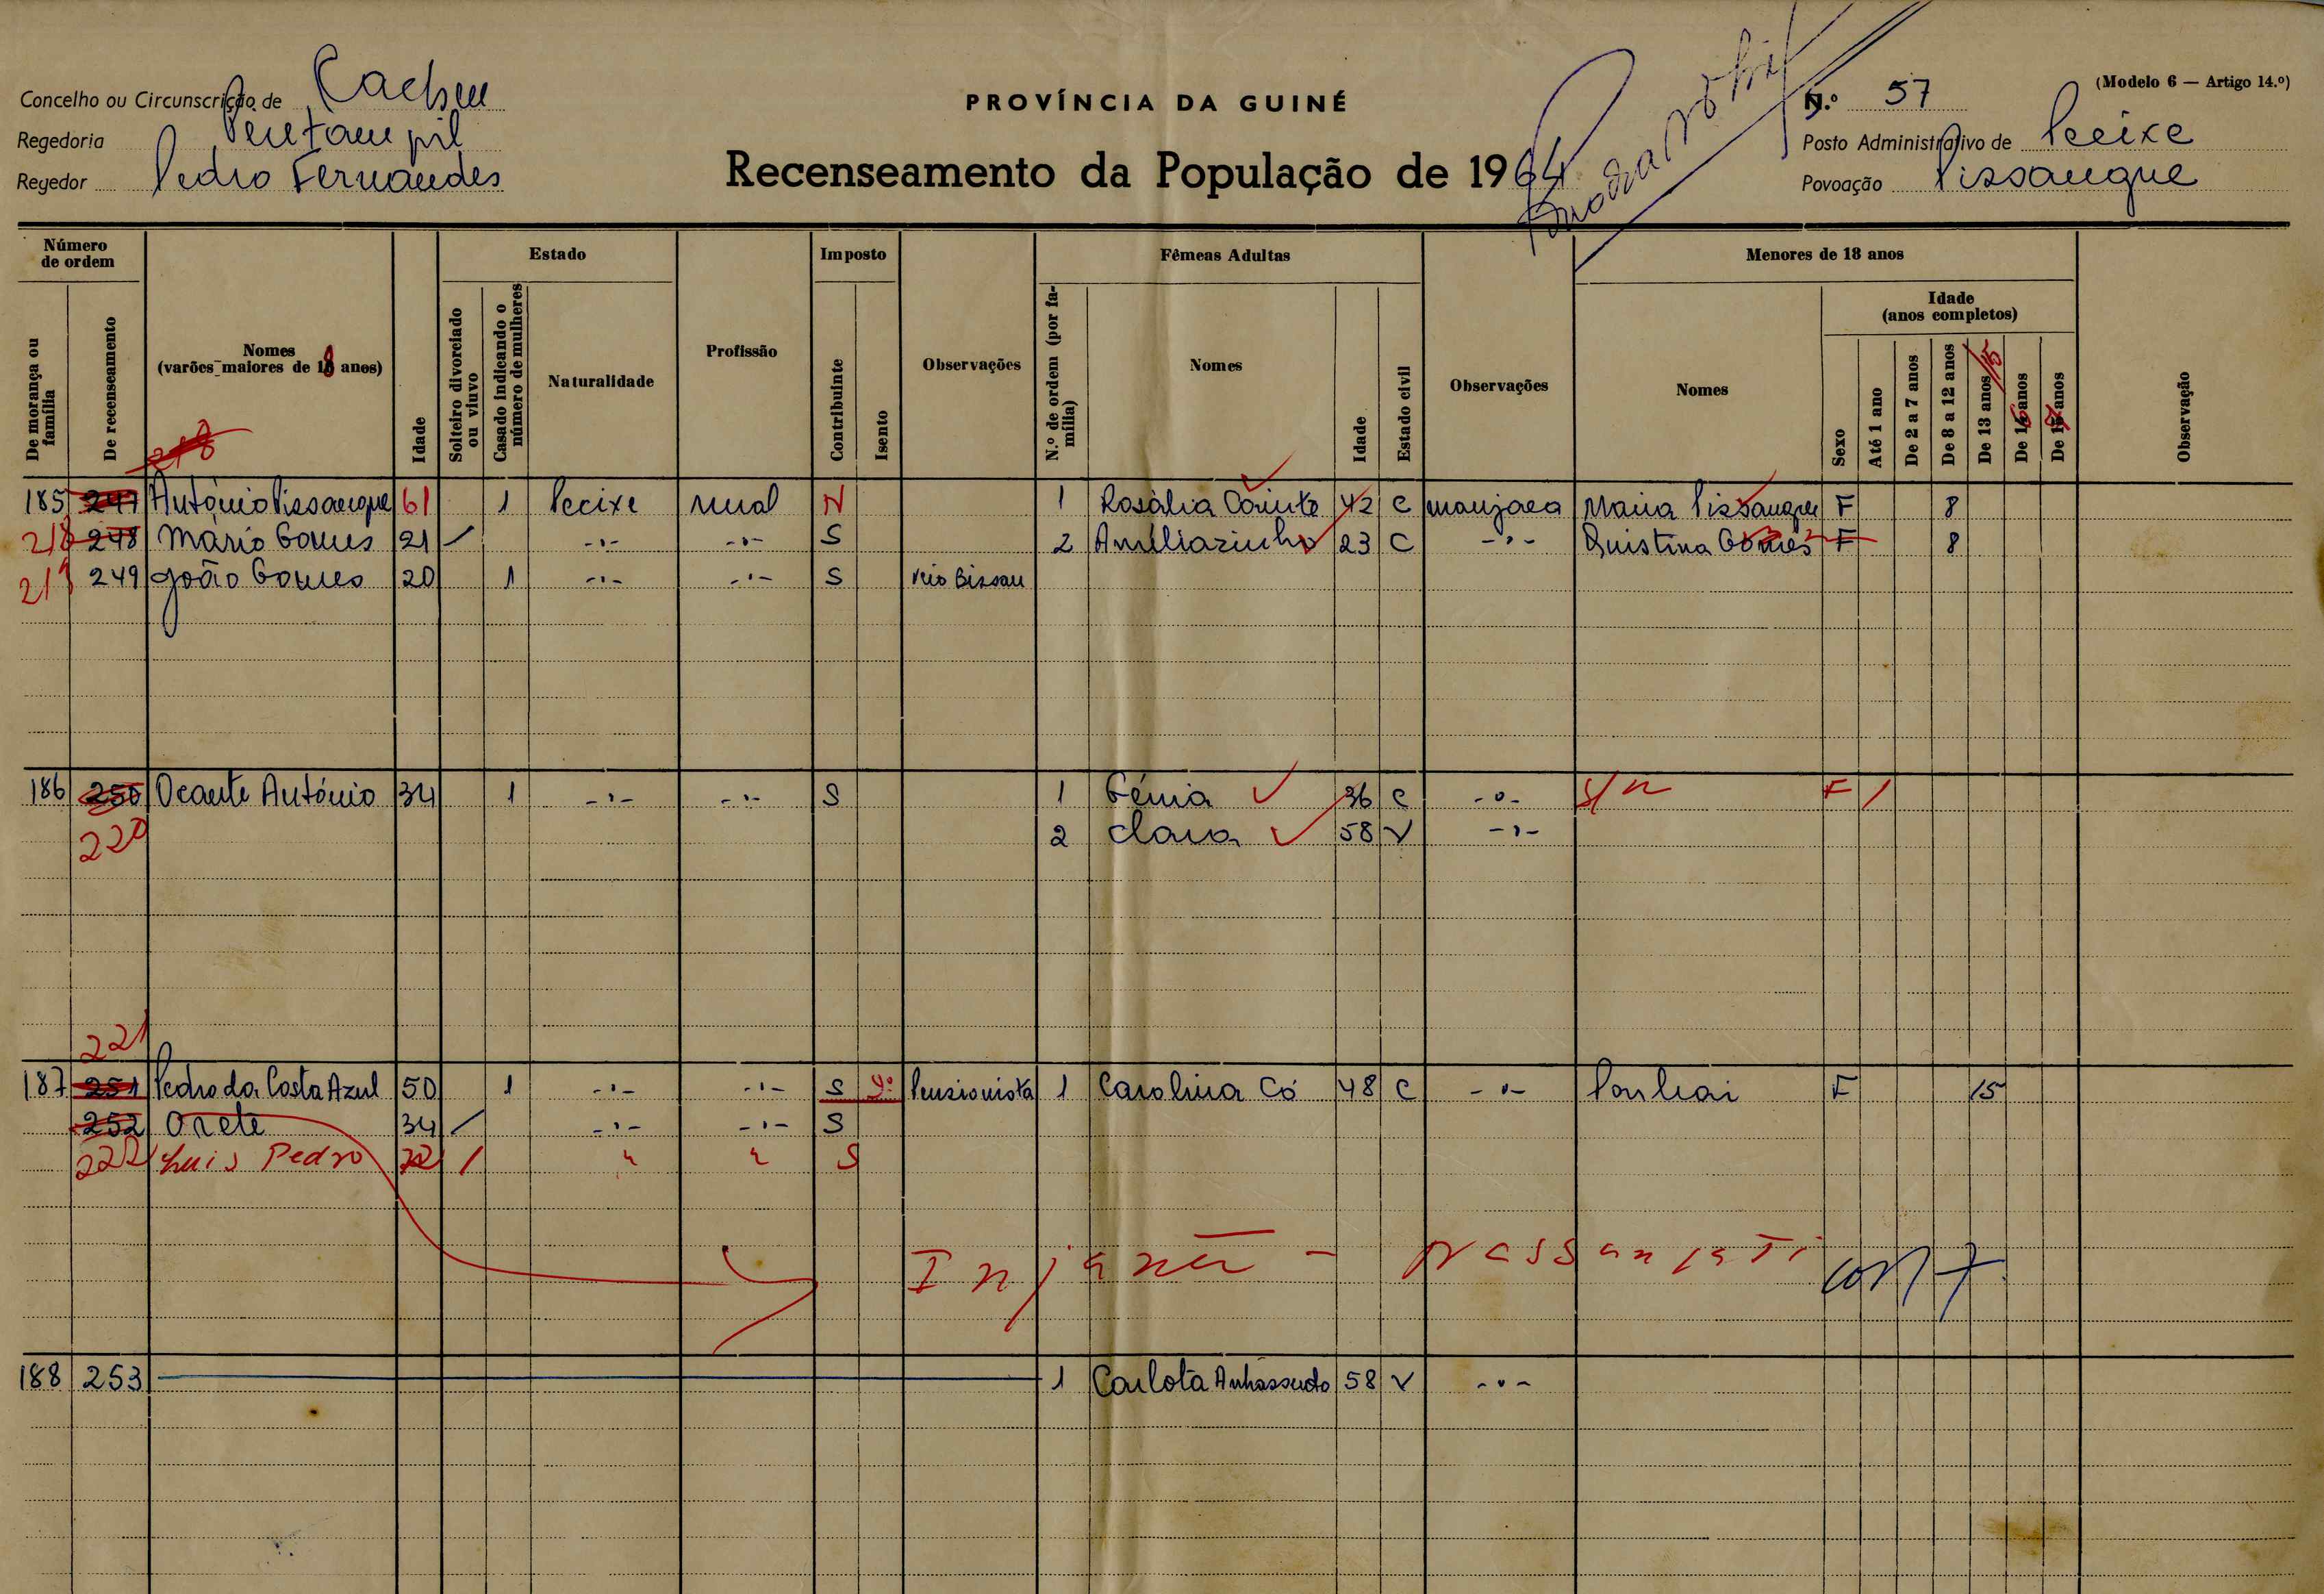 Concelho ou Circunscrição de Cacheu
PROVÍNCIA DA GUINÉ
N.º 57
(Modelo 6 — Artigo 14.º)
Regedoria
Posto Administrativo de Pecixe
Regedor Pedro Fernandes
Recenseamento da População de 1964
Povoação Pissangue
Número de ordem
Estado
Imposto
Fêmeas Adultas
Menores de 18 anos
De morança ou família
De recenseamento
Nomes (varões maiores de 18 anos)
Idade
Solteiro divorciado ou viuvo
Casado indicando o número de mulheres
Naturalidade
Profissão
Contribuinte
Isento
Observações
N.º de ordem (por família)
Nomes
Idade
Estado civil
Observações
Nomes
Sexo
Idade (anos completos)
Até 1 ano
De 2 a 7 anos
De 8 a 12 anos
De 13 anos 15
De 16 anos
De anos
Observação
218
185 247 António Pissangue 61 1 Pecixe rural N 1 Rosália 42 C manjaca Maria Pissangue F 8
218 248 Mário Gomes 21 / -·- -·- S 2 23 C -·- Quistina Gomes F 8
219 249 João Gomes 20 1 -·- -·- S Veio Bissau
186 250 Ocante António 34 1 -·- -·- S 1 36 C -·- S/n F /
220 2 Clara 58 V -·-
221
187 251 Pedro da Costa Azul 50 1 -·- -·- S Pensionista 1 Carolina Có 48 C -·- F 15
252 Onete 34 / -·- -·- S
222 Luis Pedro 22 / " " S
188 253 1 Carlota 58 V -·-